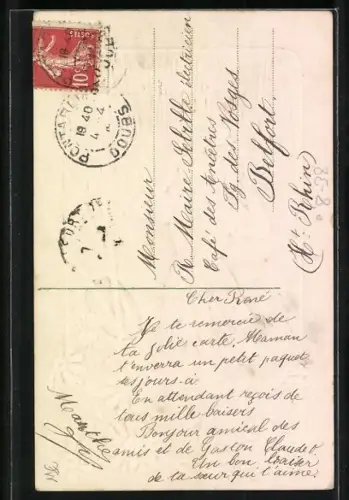 10
PONTARLIER
DOUBS
19 40
4 - 4
Monsieur
R. Maire électricien
Café des
Fg. des Vosges
Belfort
(Ht. Rhin)
Cher René
Je te remercie de
ta jolie carte, Maman
t'enverra un petit paquet
ses jours-ci
En attendant reçois de
tous mille baisers
Bonjour amical des
amis et de Gaston Claude
Un bon baiser
de ta sœur qui t'aime
Marthe